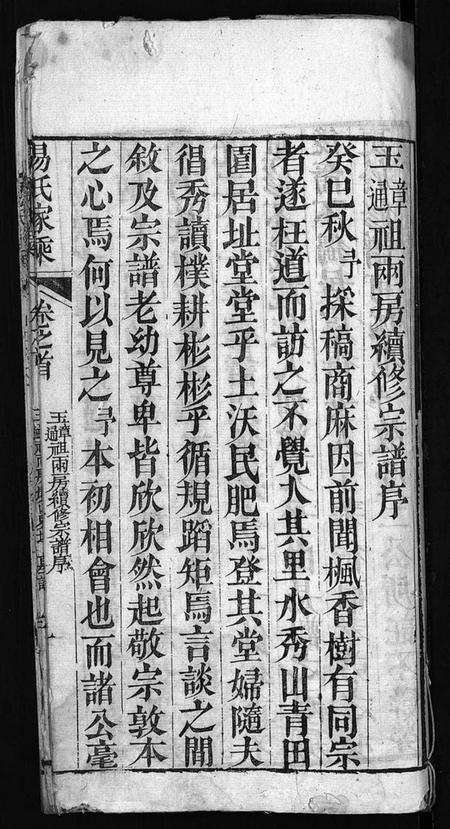 玉璋通祖兩房續修宗譜序
癸巳秋予採稿商麻因前聞楓香樹有同宗
者遂枉道而訪之不覺入其里水秀山青田
園居址堂堂乎土沃民肥焉登其堂婦隨夫
倡秀讀樸耕彬彬乎循規蹈矩焉言談之間
敘及宗譜老幼尊卑皆欣欣然起敬宗敦本
之心焉何以見之予本初相會也而諸公毫
楊氏家乘
卷之首
玉璋通祖兩房續修宗譜序